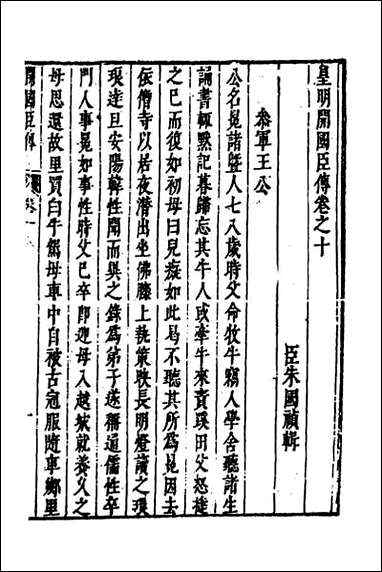 皇明開國臣傳卷之十
臣朱國禎輯
叅軍王公
公名冕諸暨人七八歲時父命牧牛竊入學舍聽諸生
誦書輒默記暮歸忘其牛人或牽牛來責蹊田父怒撻
之已而復如初母曰兒癡如此曷不聽其所爲冕因去
依僧寺以居夜潛出坐佛膝上執策映長明燈讀之琅
琅達旦安陽韓性聞而異之錄爲弟子遂稱通儒性卒
門人事冕如事性時父已卒卽迎母入越城就養久之
母思還故里買白牛駕母車中自被古冠服隨車鄉里
開國臣傳 卷十 一